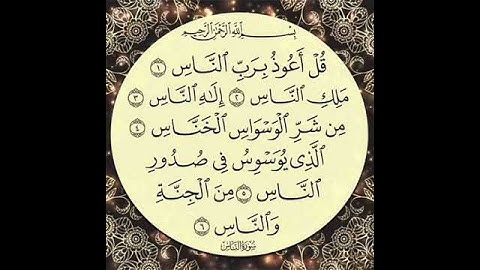 بِسْمِ اللَّهِ الرَّحْمَٰنِ الرَّحِيمِ
قُلْ أَعُوذُ بِرَبِّ النَّاسِ ١
مَلِكِ النَّاسِ ٢ إِلَٰهِ النَّاسِ ٣
مِن شَرِّ الْوَسْوَاسِ الْخَنَّاسِ ٤
الَّذِي يُوَسْوِسُ فِي صُدُورِ
النَّاسِ ٥ مِنَ الْجِنَّةِ
وَالنَّاسِ ٦
سُورَةُ النَّاسِ